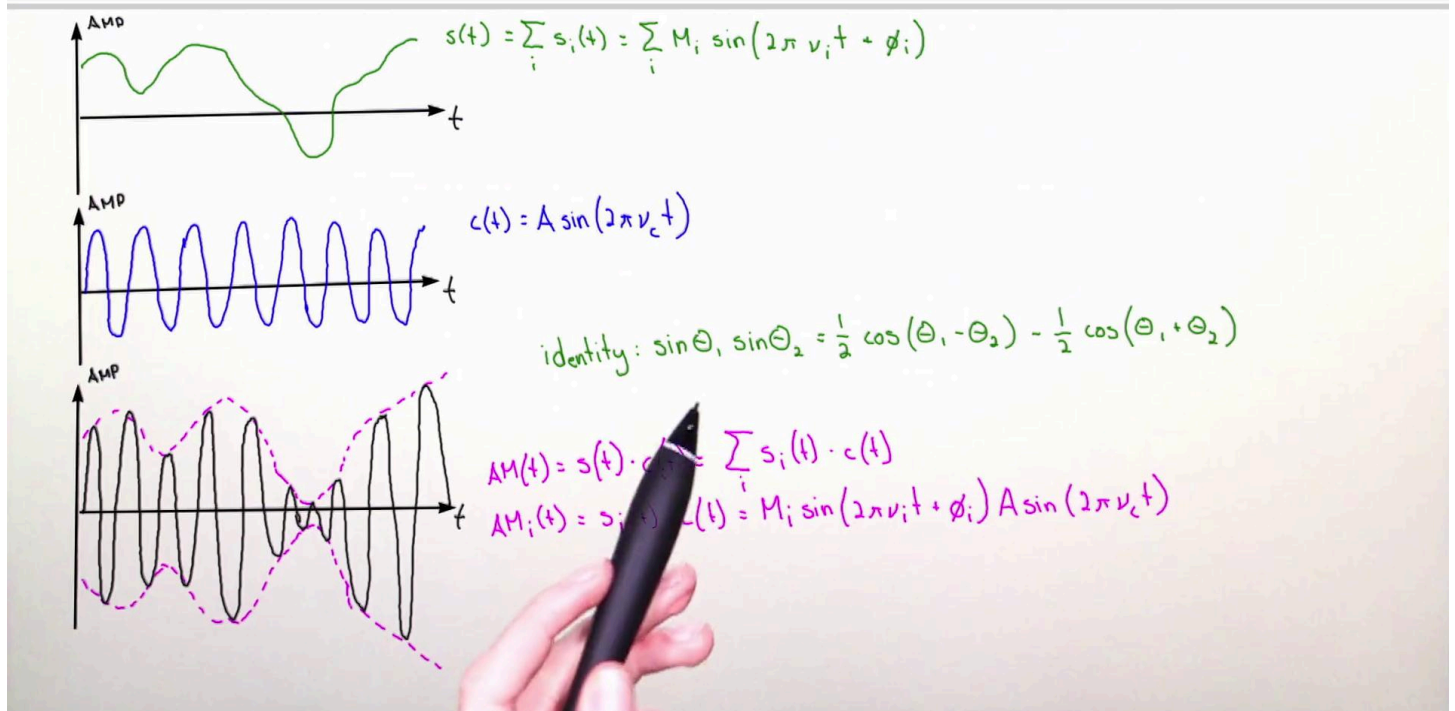 AMP
s(t) = Σ_i s_i(t) = Σ_i M_i sin(2π ν_i t + φ_i)
t
AMP
c(t) = A sin(2π ν_c t)
t
identity: sin Θ₁ sin Θ₂ = 1/2 cos(Θ₁ - Θ₂) - 1/2 cos(Θ₁ + Θ₂)
AMP
AM(t) = s(t) · c(t) = Σ_i s_i(t) · c(t)
t
AM_i(t) = s_i(t) c(t) = M_i sin(2π ν_i t + φ_i) A sin(2π ν_c t)